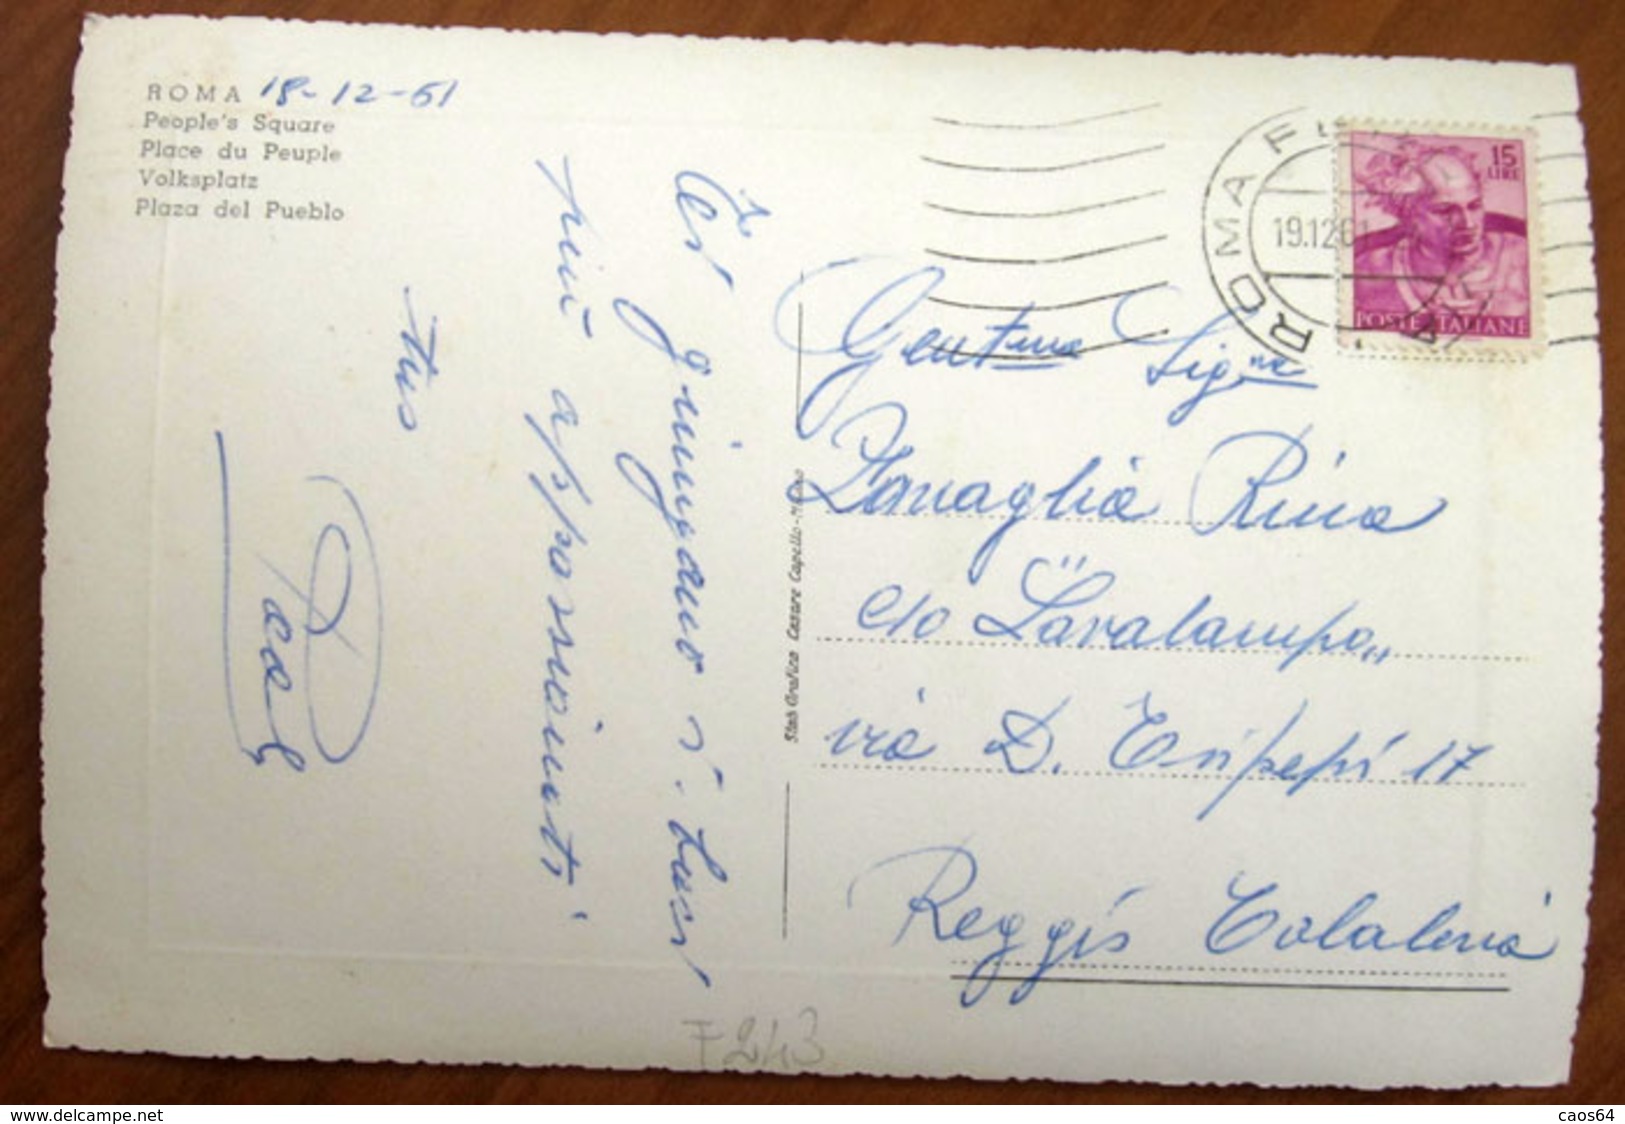 ROMA 18-12-61
People's Square
Place du Peuple
Volksplatz
Plaza del Pueblo
giungano i
più appassionati
tuo
Stab Grafico Cesare Capello-Milano
ROMA
19.12.61
15
LIRE
POSTE ITALIANE
Gent.ma Sig.na
Zanaglia Rina
c/o "Lavalampo„
via D. Tripepi 17
Reggio Calabria
F243
www.delcampe.net
caos64